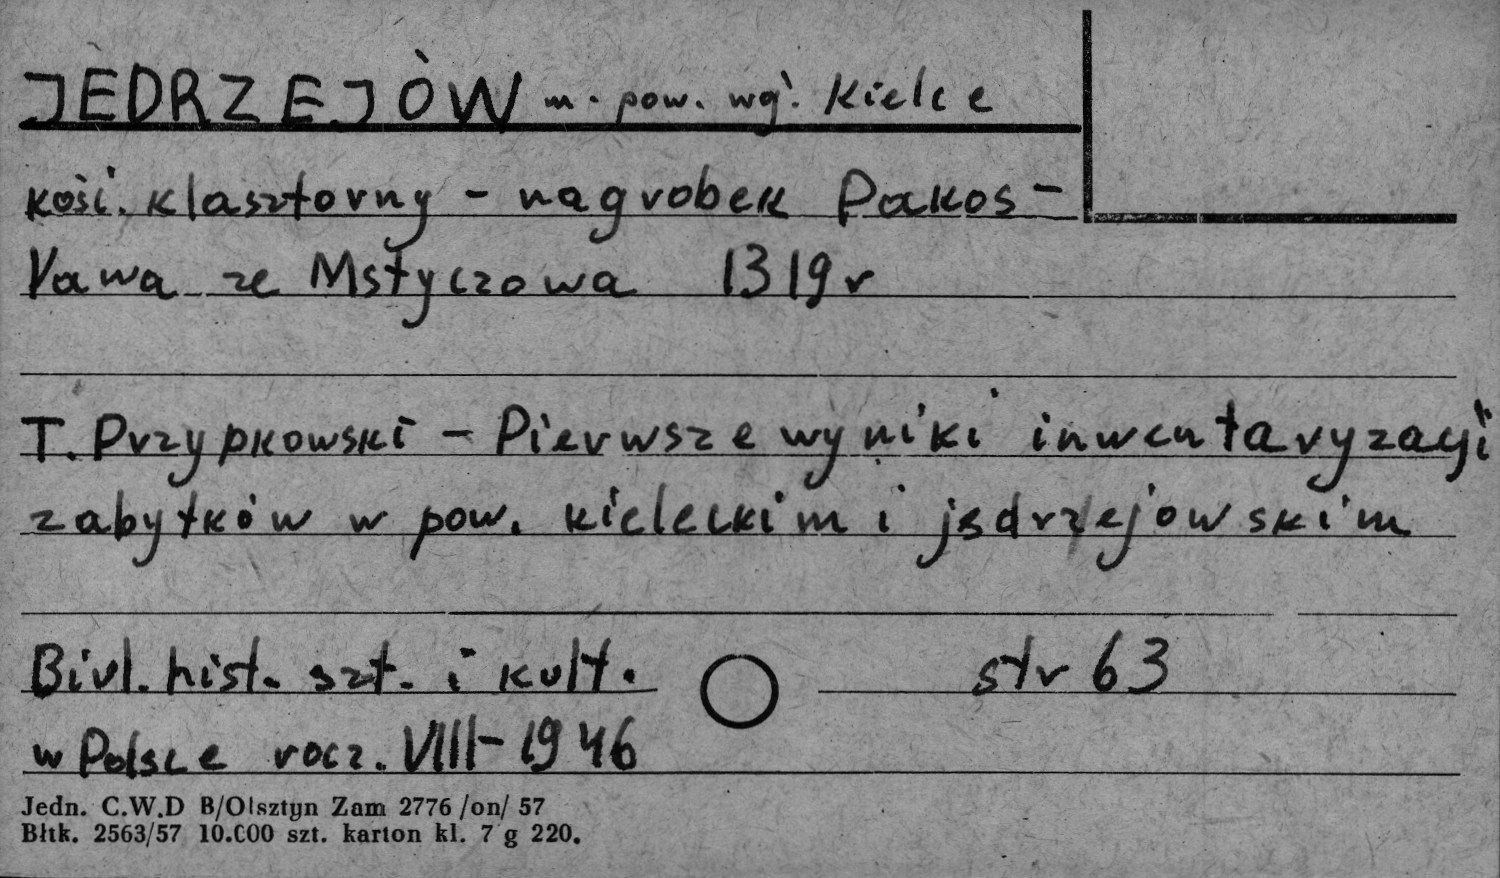 JEDRZEJÓW m. pow. wg. Kielce
kośi. klasztorny - nagrobek Pakos-
Vawa ze Mstyczowa 1319 r
T. Przypkowski - Pierwsze wyniki inwentaryzacji
zabytków w pow. kieleckim i jedrzejowskim
Biul. hist. szt. i kult. str 63
w Polsce rocz. VIII-1946
Jedn. C.W.D B/Olsztyn Zam 2776 /on/ 57
Błtk. 2563/57 10.000 szt. karton kl. 7 g 220.